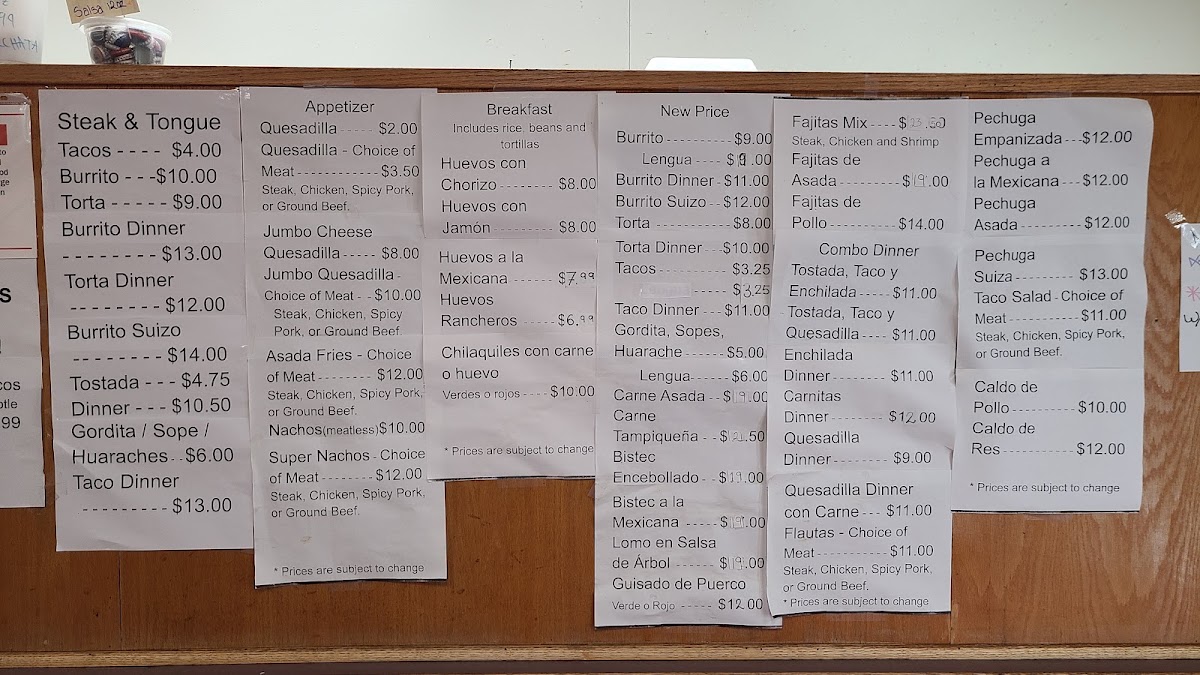 Salsa 12oz
99
Steak & Tongue
Tacos - - - - $4.00
Burrito - - -$10.00
Torta - - - - - $9.00
Burrito Dinner
- - - - - - - - - $13.00
Torta Dinner
- - - - - - - - - $12.00
Burrito Suizo
- - - - - - - - $14.00
Tostada - - - $4.75
Dinner - - - $10.50
Gordita / Sope /
Huaraches - - $6.00
Taco Dinner
- - - - - - - - - $13.00
Appetizer
Quesadilla - - - - - $2.00
Quesadilla - Choice of
Meat - - - - - - - - - $3.50
Steak, Chicken, Spicy Pork,
or Ground Beef.
Jumbo Cheese
Quesadilla - - - - - $8.00
Jumbo Quesadilla -
Choice of Meat - - $10.00
Steak, Chicken, Spicy
Pork, or Ground Beef.
Asada Fries - Choice
of Meat - - - - - - - - $12.00
Steak, Chicken, Spicy Pork,
or Ground Beef.
Nachos(meatless)$10.00
Super Nachos - Choice
of Meat - - - - - - - - $12.00
Steak, Chicken, Spicy Pork,
or Ground Beef.
* Prices are subject to change
Breakfast
Includes rice, beans and
tortillas
Huevos con
Chorizo - - - - - - - - $8.00
Huevos con
Jamón - - - - - - - - - $8.00
Huevos a la
Mexicana - - - - - $7.99
Huevos
Rancheros - - - - - $6.99
Chilaquiles con carne
o huevo
Verdes o rojos - - - - $10.00
* Prices are subject to change
New Price
Burrito - - - - - - - - - $9.00
Lengua - - - - $9.00
Burrito Dinner - $11.00
Burrito Suizo - - $12.00
Torta - - - - - - - - - - $8.00
Torta Dinner - - - $10.00
Tacos - - - - - - - - - $3.25
- - - - - $3.25
Taco Dinner - - - $11.00
Gordita, Sopes,
Huarache - - - - - - $5.00
Lengua - - - - $6.00
Carne Asada - - $19.00
Carne
Tampiqueña - - .50
Bistec
Encebollado - - .00
Bistec a la
Mexicana - - - - - $19.00
Lomo en Salsa
de Árbol - - - - - - $19.00
Guisado de Puerco
Verde o Rojo - - - - - $12.00
Fajitas Mix - - - - $23.50
Steak, Chicken and Shrimp
Fajitas de
Asada - - - - - - - - - $19.00
Fajitas de
Pollo - - - - - - - - - - $14.00
Combo Dinner
Tostada, Taco y
Enchilada - - - - - $11.00
Tostada, Taco y
Quesadilla - - - - - $11.00
Enchilada
Dinner - - - - - - - - $11.00
Carnitas
Dinner - - - - - - - - $12.00
Quesadilla
Dinner - - - - - - - - $9.00
Quesadilla Dinner
con Carne - - - $11.00
Flautas - Choice of
Meat - - - - - - - - - - - $11.00
Steak, Chicken, Spicy Pork,
or Ground Beef.
* Prices are subject to change
Pechuga
Empanizada - - $12.00
Pechuga a
la Mexicana - - - $12.00
Pechuga
Asada - - - - - - - - - $12.00
Pechuga
Suiza - - - - - - - - - $13.00
Taco Salad - Choice of
Meat - - - - - - - - - - $11.00
Steak, Chicken, Spicy Pork,
or Ground Beef.
Caldo de
Pollo - - - - - - - - - - $10.00
Caldo de
Res - - - - - - - - - - - $12.00
* Prices are subject to change